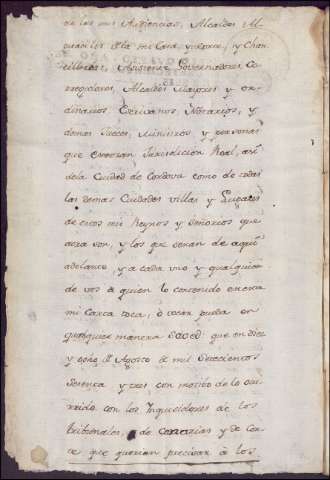 de las mis Audiencias, Alcaldes Al
guaciles d la mi Casa, y Corte, y Chan
cillerias, Asistente Governadores Co
rregidores, Alcaldes Mayores y or
dinarios Escrivanos, Notarios, y
demas Jueces, Ministros y personas
que exerzan Jurisdicion Real, asi
dela Ciudad de Cordova como de todas
las demas Ciudades villas y Lugares
de estos mis Reynos y Señorios que
aora son, y los que seràn de aqui
adelante y a cada uno y qualquier
de vos à quien lo contenido en esta
mi Carta toca, ò tocàr pueda en
qualquier manera SAVED: que en diez
y ocho d Agosto d mil setecientos
setenta y tres con motibo de lo ocu
rrido con los Inquilidores de los
tribunales, de y de Cor
te que querian precisar à los